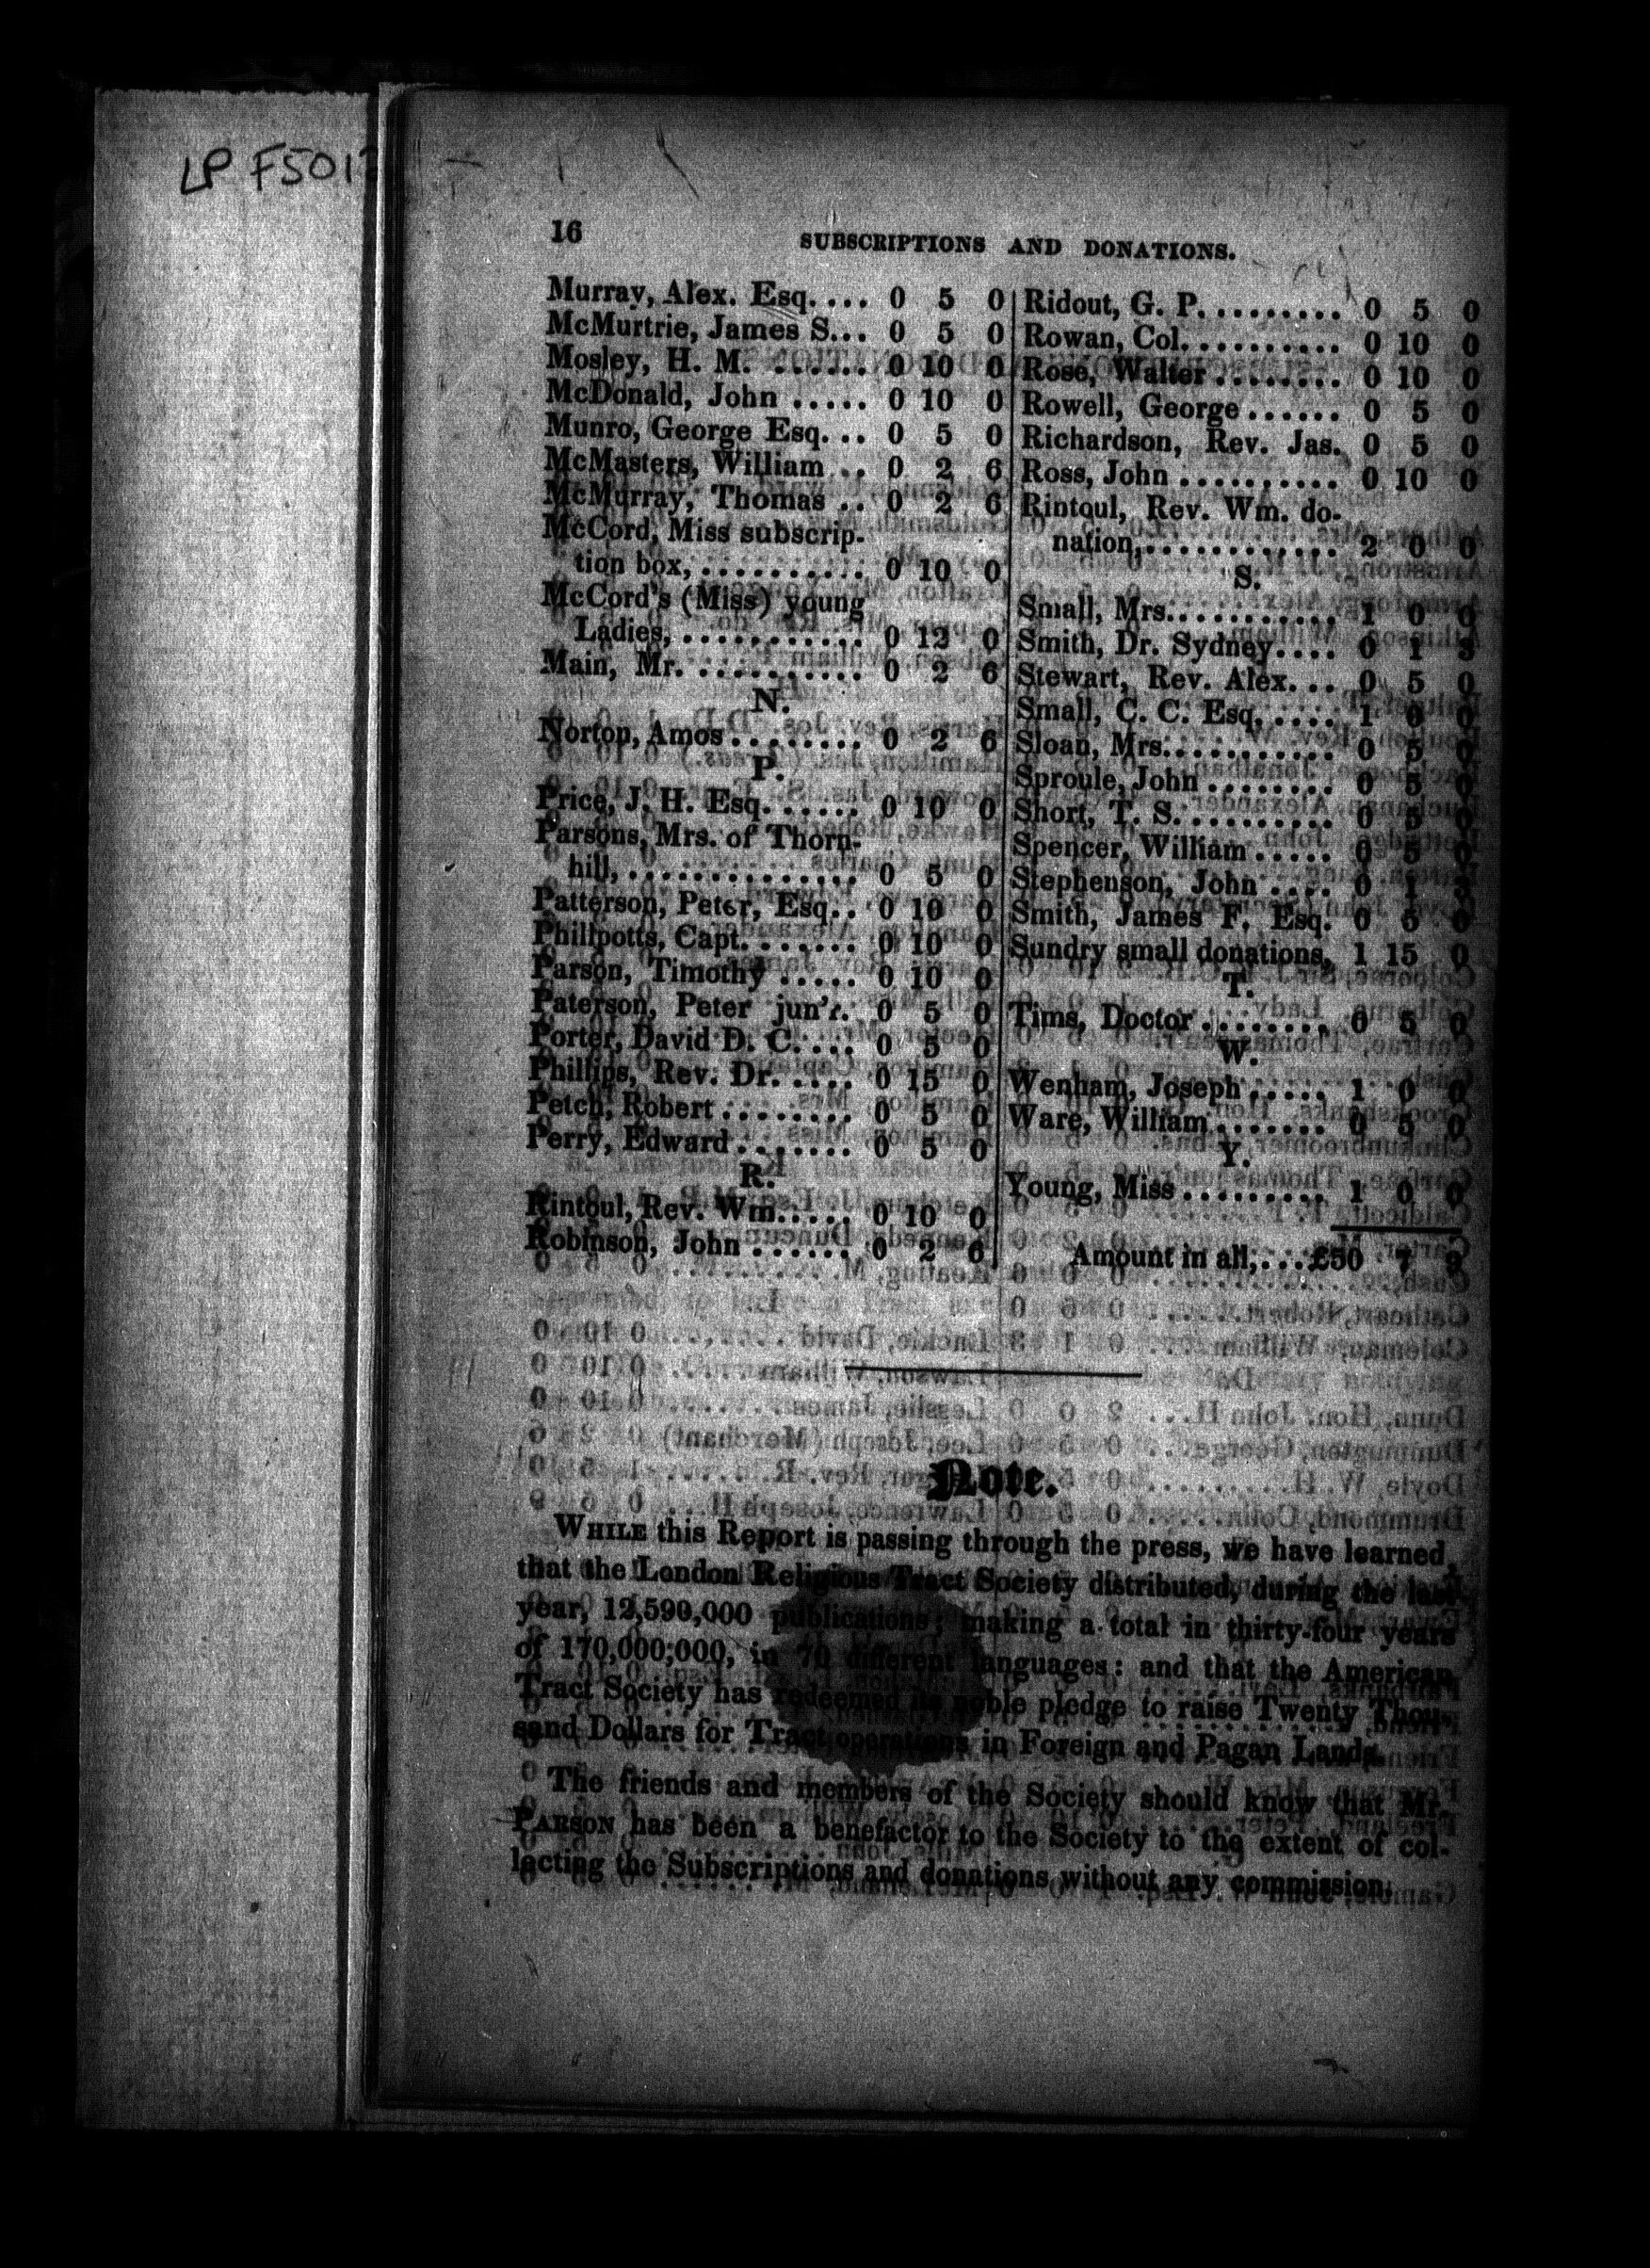 LP F5012
16
SUBSCRIPTIONS AND DONATIONS.
Murray, Alex. Esq. ... 0 5 0
McMurtrie, James S... 0 5 0
Mosley, H. M. ...... 0 10 0
McDonald, John ..... 0 10 0
Munro, George Esq. .. 0 5 0
McMasters, William .. 0 2 6
McMurray, Thomas .. 0 2 6
McCord, Miss subscrip-
tion box, .......... 0 10 0
McCord's (Miss) young
Ladies, ........... 0 12 0
Main, Mr. .......... 0 2 6
N.
Norton, Amos ........ 0 2 6
P.
Price, J. H. Esq. ..... 0 10 0
Parsons, Mrs. of Thorn-
hill, .............. 0 5 0
Patterson, Peter, Esq. . 0 10 0
Phillpotts, Capt. ...... 0 10 0
Parson, Timothy ..... 0 10 0
Paterson, Peter jun'r. 0 5 0
Porter, David D. C. ... 0 5 0
Phillips, Rev. Dr. .... 0 15 0
Petch, Robert ........ 0 5 0
Perry, Edward ....... 0 5 0
R.
Rintoul, Rev. Wm..... 0 10 0
Robinson, John ...... 0 2 6
Ridout, G. P. ........ 0 5 0
Rowan, Col. ......... 0 10 0
Rose, Walter ........ 0 10 0
Rowell, George ...... 0 5 0
Richardson, Rev. Jas. 0 5 0
Ross, John .......... 0 10 0
Rintoul, Rev. Wm. do-
nation, ............ 2 0 0
S.
Small, Mrs........... 1 0 0
Smith, Dr. Sydney.... 0 1 3
Stewart, Rev. Alex. .. 0 5 0
Small, C. C. Esq. .... 1 0 0
Sloan, Mrs........... 0 5 0
Sproule, John ........ 0 5 0
Short, T. S. ......... 0 5 0
Spencer, William ..... 0 5 0
Stephenson, John .... 0 1 3
Smith, James F. Esq. 0 5 0
Sundry small donations, 1 15 0
T.
Tims, Doctor ........ 0 5 0
W.
Wenham, Joseph ..... 1 0 0
Ware, William ....... 0 5 0
Y.
Young, Miss ......... 1 0 0
Amount in all, ...£50 7 9
Note.
WHILE this Report is passing through the press, we have learned,
that the London Religious Tract Society distributed, during the last
year, 12,590,000 publications; making a total in thirty-four years
of 170,000,000, in 70 different languages: and that the American
Tract Society has redeemed its noble pledge to raise Twenty Thou-
sand Dollars for Tract operations in Foreign and Pagan Lands.
The friends and members of the Society should know that Mr.
PARSON has been a benefactor to the Society to the extent of col-
lecting the Subscriptions and donations without any commission.